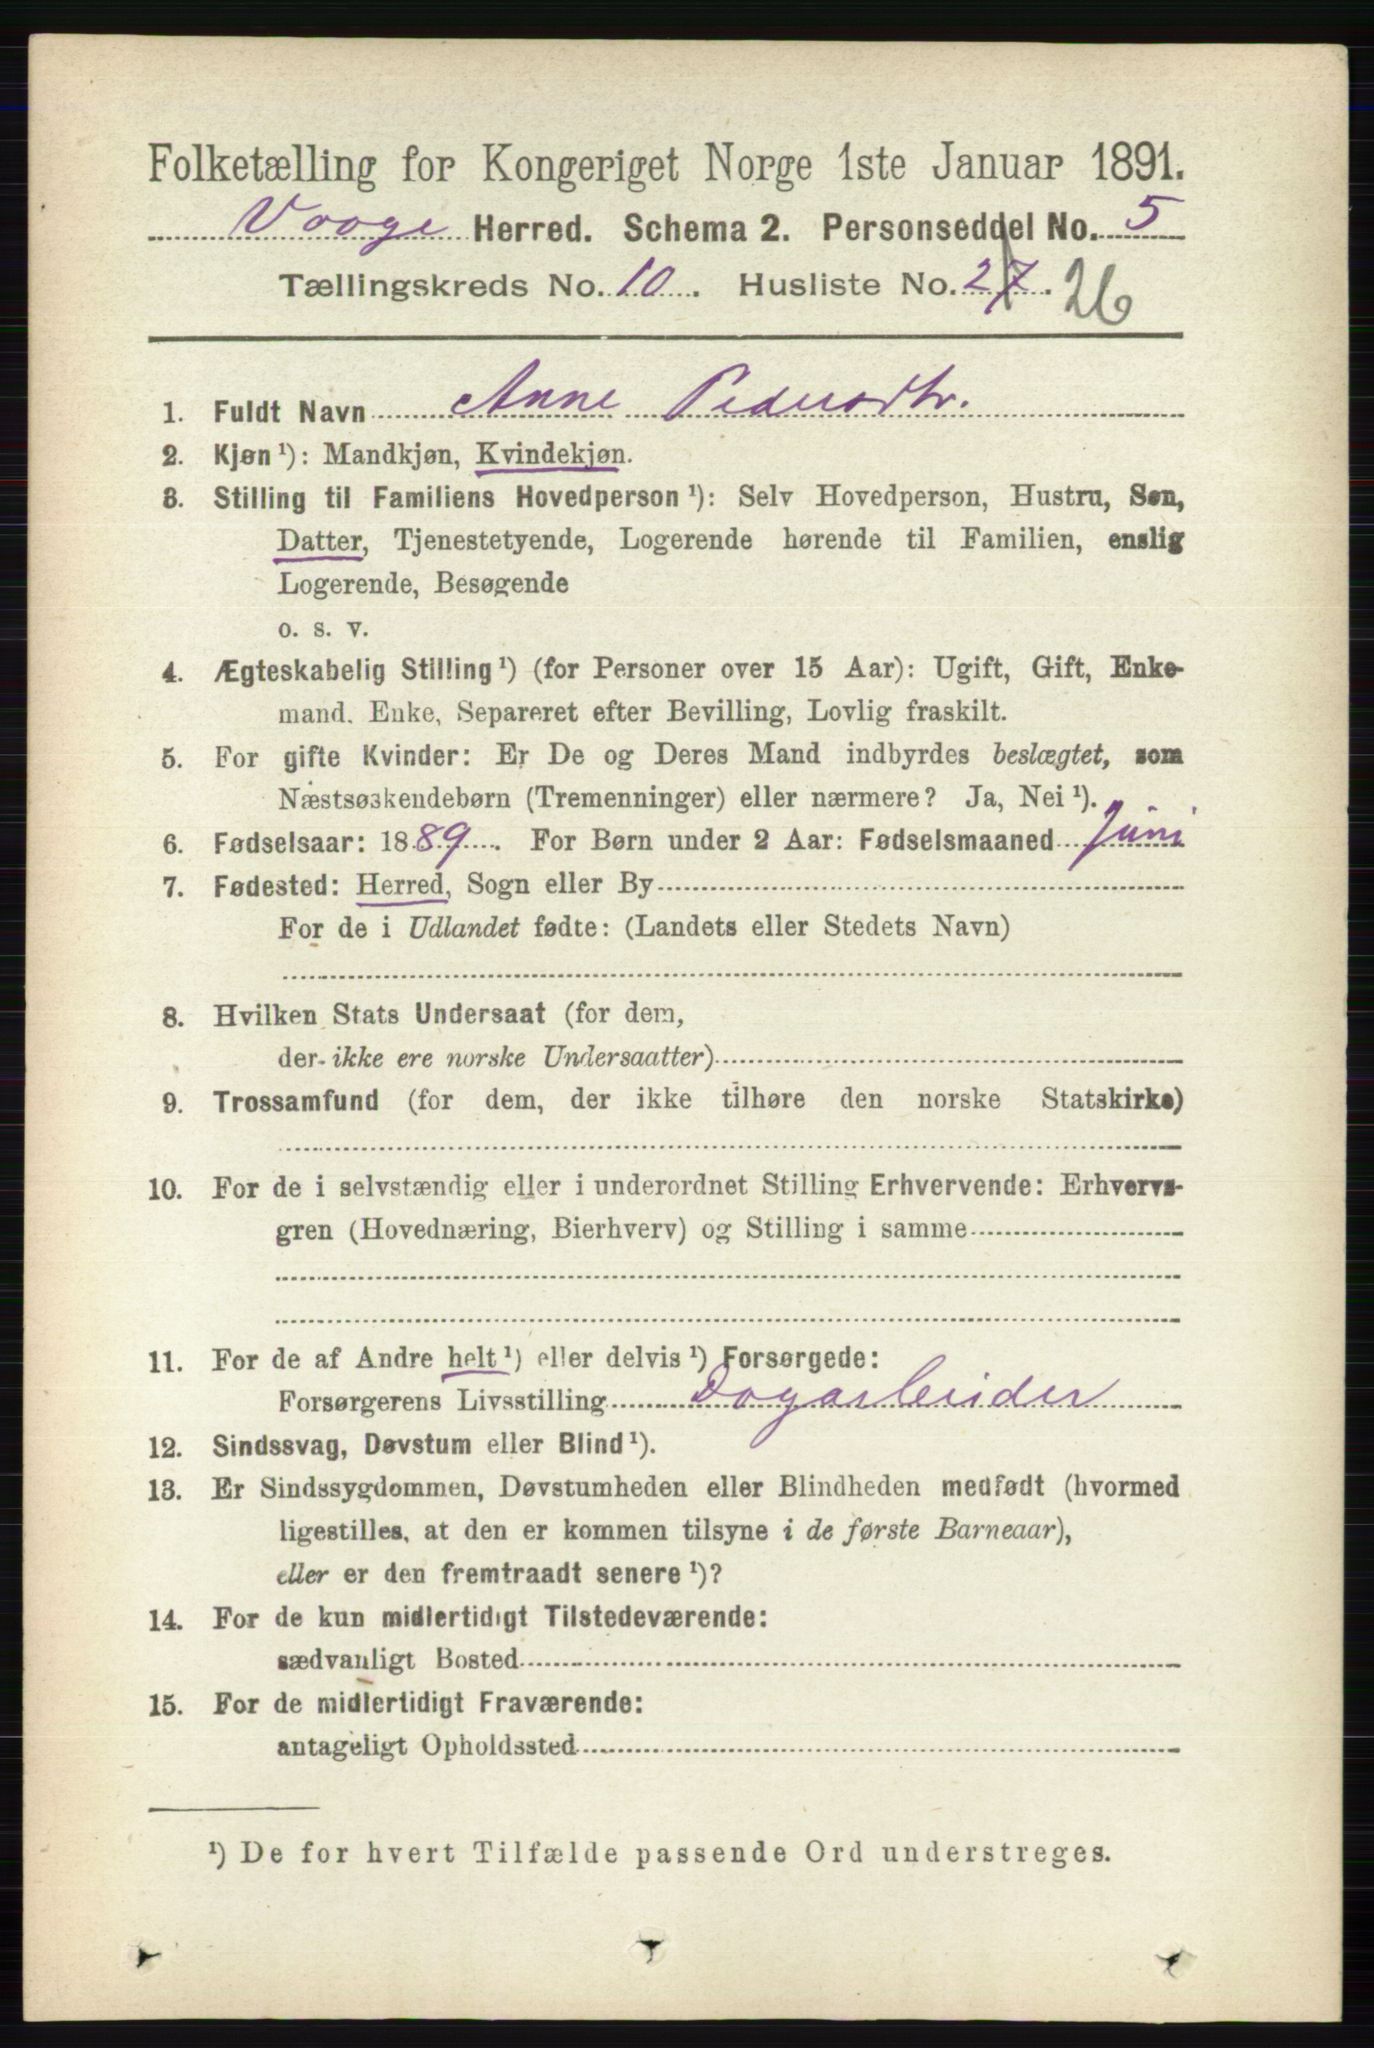 Folketælling for Kongeriget Norge 1ste Januar 1891.
Vaage Herred. Schema 2. Personseddel No. 5
Tællingskreds No. 10. Husliste No. 27. 26
1. Fuldt Navn Anne Pedersdtr.
2. Kjøn ¹): Mandkjøn, Kvindekjøn.
3. Stilling til Familiens Hovedperson ¹): Selv Hovedperson, Hustru, Søn,
Datter, Tjenestetyende, Logerende hørende til Familien, enslig
Logerende, Besøgende
o. s. v.
4. Ægteskabelig Stilling ¹) (for Personer over 15 Aar): Ugift, Gift, Enke-
mand, Enke, Separeret efter Bevilling, Lovlig fraskilt.
5. For gifte Kvinder: Er De og Deres Mand indbyrdes beslægtet, som
Næstsøskendebørn (Tremenninger) eller nærmere? Ja, Nei ¹).
6. Fødselsaar: 1889. For Børn under 2 Aar: Fødselsmaaned Juni
7. Fødested: Herred, Sogn eller By
For de i Udlandet fødte: (Landets eller Stedets Navn)
8. Hvilken Stats Undersaat (for dem,
der ikke ere norske Undersaatter)
9. Trossamfund (for dem, der ikke tilhøre den norske Statskirke)
10. For de i selvstændig eller i underordnet Stilling Erhvervende: Erhvervs-
gren (Hovednæring, Bierhverv) og Stilling i samme
11. For de af Andre helt ¹) eller delvis ¹) Forsørgede:
Forsørgerens Livsstilling Dagarbeider
12. Sindssvag, Døvstum eller Blind ¹).
13. Er Sindssygdommen, Døvstumheden eller Blindheden medfødt (hvormed
ligestilles, at den er kommen tilsyne i de første Barneaar),
eller er den fremtraadt senere ¹)?
14. For de kun midlertidigt Tilstedeværende:
sædvanligt Bosted
15. For de midlertidigt Fraværende:
antageligt Opholdssted
¹) De for hvert Tilfælde passende Ord understreges.